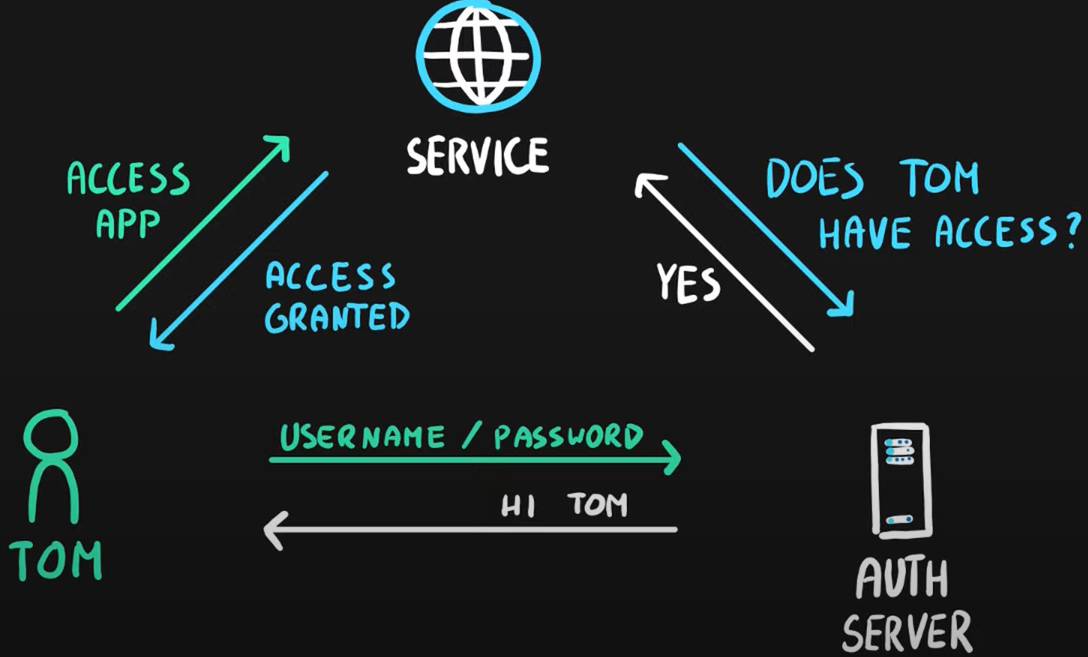 SERVICE
ACCESS
APP
ACCESS
GRANTED
DOES TOM
HAVE ACCESS?
YES
USERNAME / PASSWORD
HI TOM
TOM
AUTH
SERVER